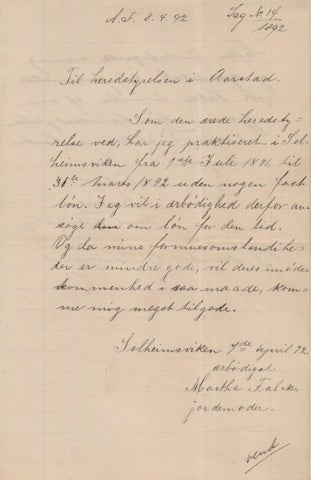 A.F. 8.4.92 Sag No 14/1892
Til heredstyrelsen i Aarstad.
Som den ærede heredsty-
relse ved, har jeg praktiseret i Sol-
heimsviken fra 1ste Juli 1891 til
31te Marts 1892 uden nogen fast
løn. Jeg vil i ærbødighed derfor an-
søge om løn for den tid.
Og da mine formuesomstendihe-
der er mindre gode, vil deres imøde-
kommenhed i saa maade, kom-
me mig meget tilgode.
Solheimsviken 7de April 92.
ærbødigst
Martha Falck
jordemoder.
vend